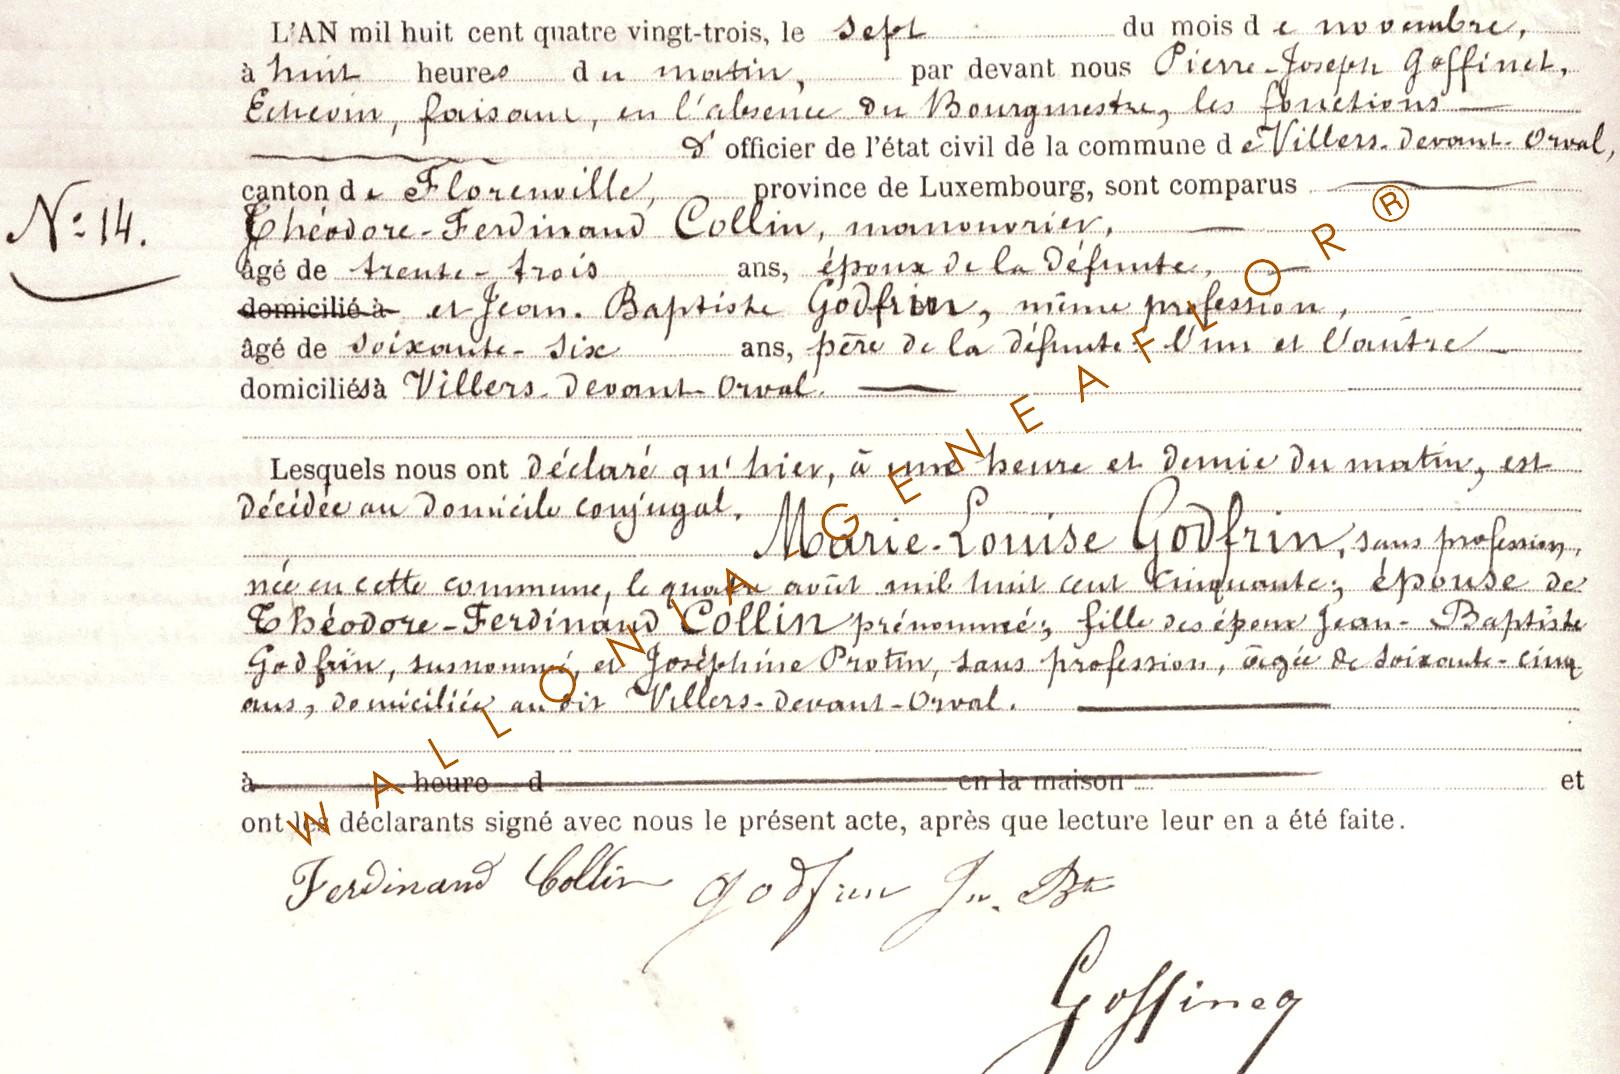 L'AN mil huit cent quatre vingt-trois, le sept du mois de novembre,
à huit heures du matin, par devant nous Pierre-Joseph Goffinet,
Echevin, faisant, en l'absence du Bourgmestre, les fonctions
d' officier de l'état civil de la commune de Villers-devant-Orval,
canton de Florenville, province de Luxembourg, sont comparus
N° 14.
Théodore-Ferdinand Collin, manouvrier,
âgé de trente-trois ans, époux de la défunte,
domicilié à et Jean-Baptiste Godfrin, même profession,
âgé de soixante-six ans, père de la défunte; l'un et l'autre
domiciliés à Villers-devant-Orval.
Lesquels nous ont déclaré qu'hier, à une heure et demie du matin, est
décédée au domicile conjugal,
Marie-Louise Godfrin, sans profession,
née en cette commune, le quatre août mil huit cent cinquante; épouse de
Théodore-Ferdinand Collin prénommé; fille des époux Jean-Baptiste
Godfrin, susnommé, et Joséphine Protin, sans profession, âgée de soixante-cinq
ans, domiciliée audit Villers-devant-Orval.
à heure d en la maison et
ont les déclarants signé avec nous le présent acte, après que lecture leur en a été faite.
Ferdinand Collin Godfrin Jn. Bte
Goffinet
WALLONIA GENEAFLOR ®